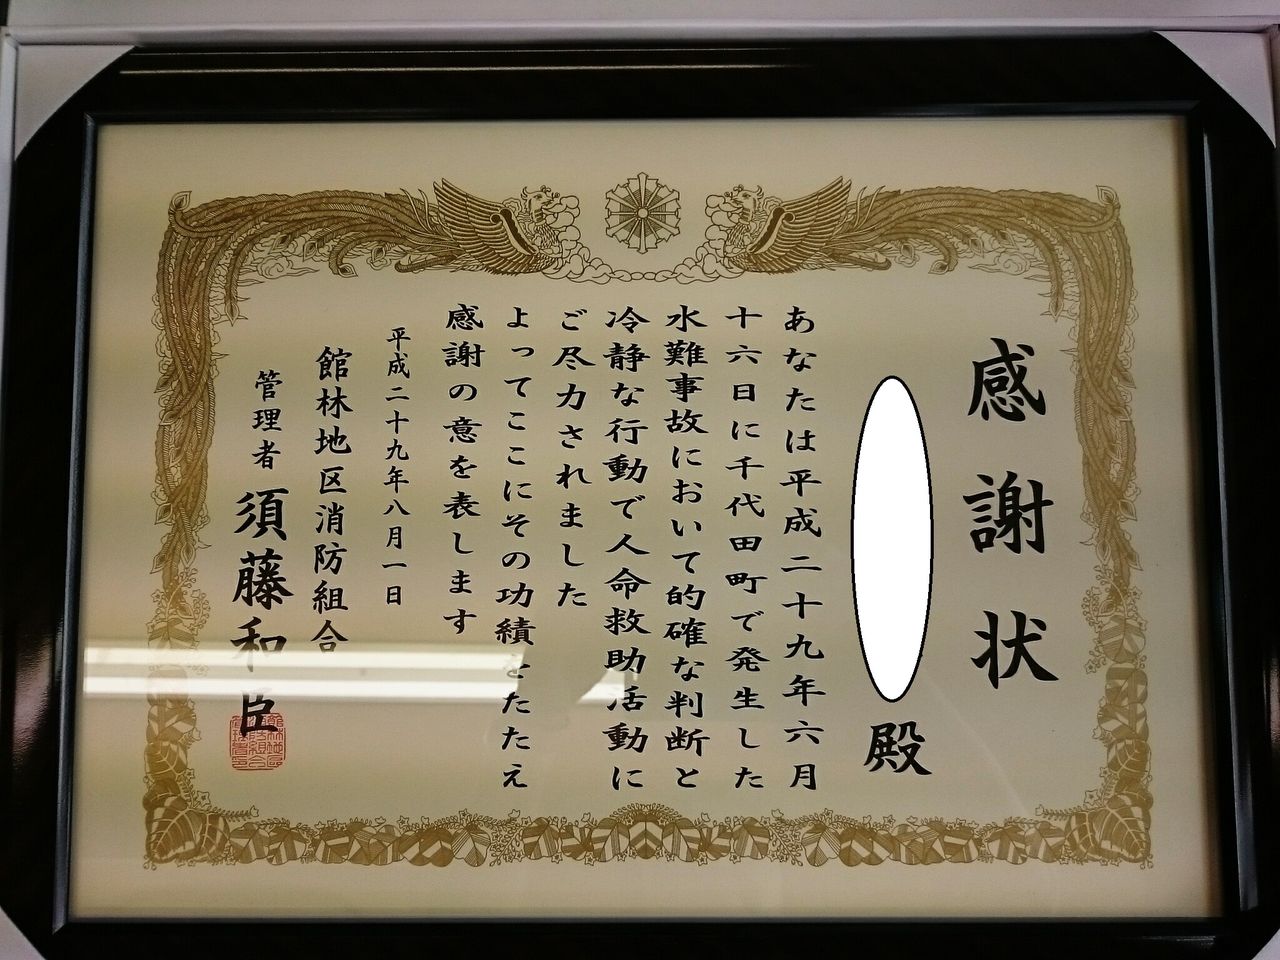 感謝状
殿
あなたは平成二十九年六月
十六日に千代田町で発生した
水難事故において的確な判断と
冷静な行動で人命救助活動に
ご尽力されました
よってここにその功績をたたえ
感謝の意を表します
平成二十九年八月一日
館林地区消防組合
管理者 須藤和臣